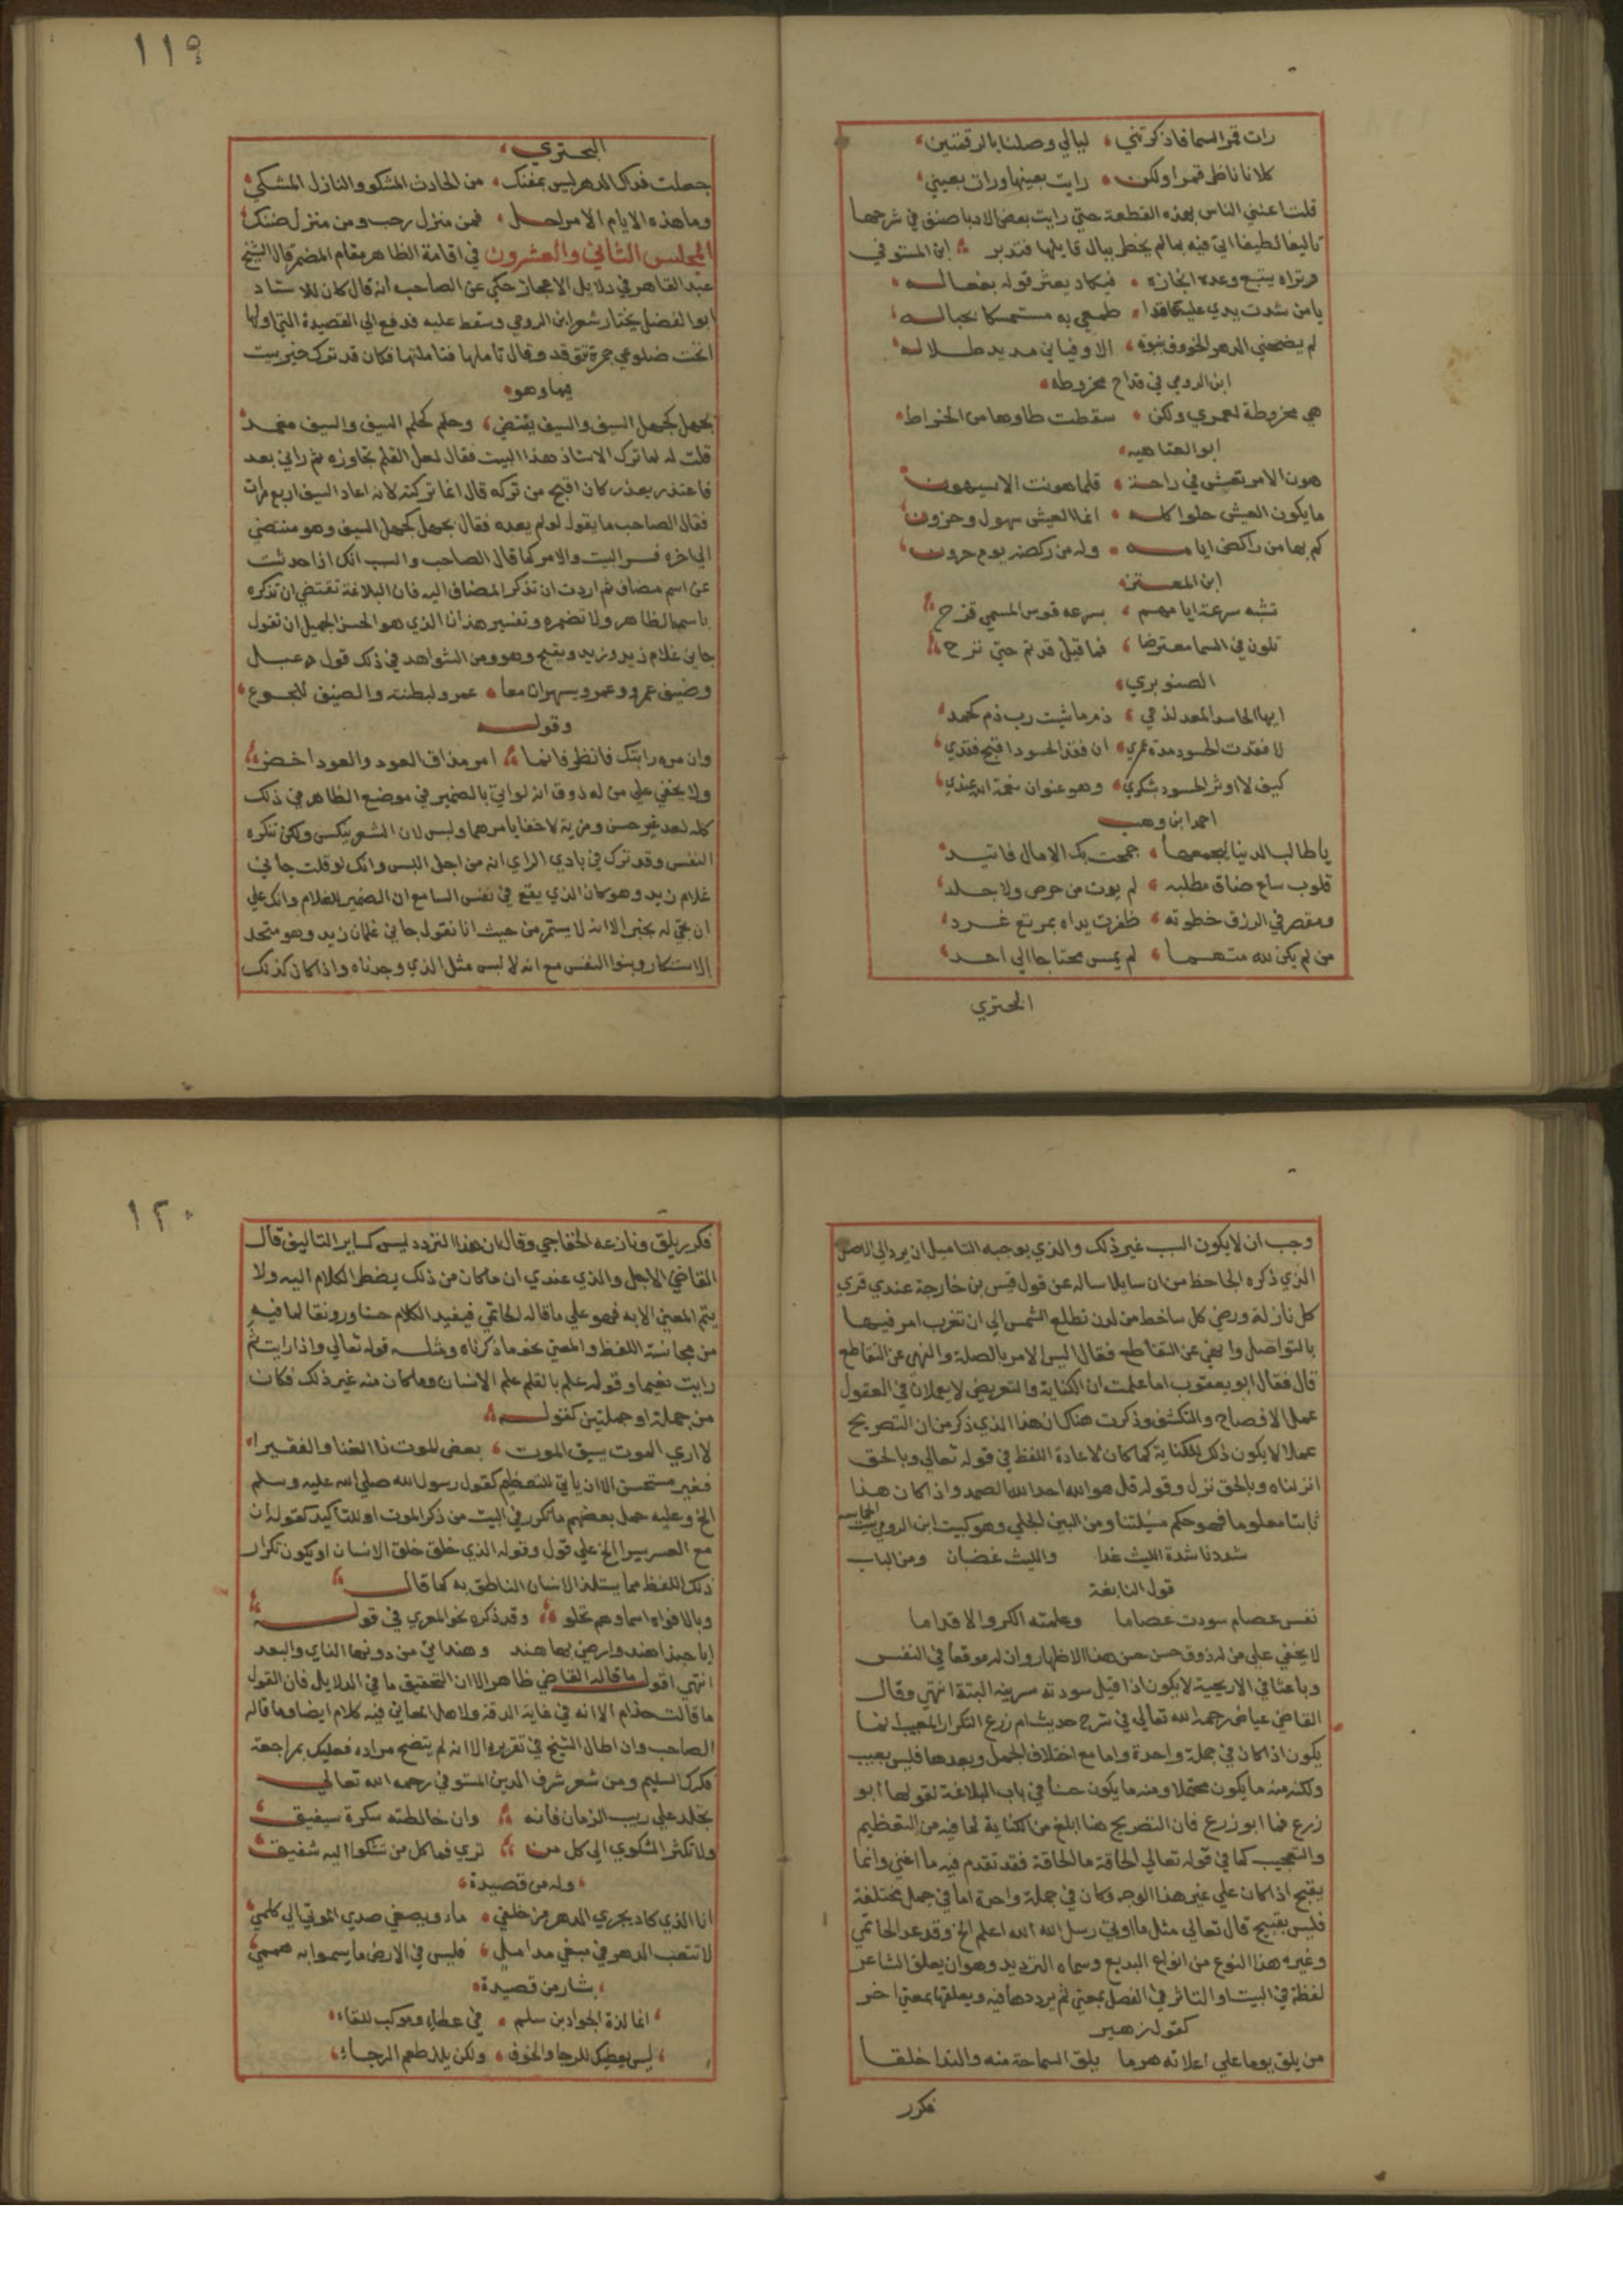 رات قمر السما فاذكرتني ، ليالي وصلنا بالرقمتين ،
كلانا ناظر قمرا ولكن ، رايت بعينها ورات بعيني ،
قلت اعتني الناس بهذه القطعة حتى رايت بعض الادبا صنف في شرحها
تاليفا لطيفا اتى فيه بما لم يخطر ببال قايلها فتدبر ، ابن المستوفي
وتراه يتبع وعده انجازه ، فيكاد يعثر قوله بفعاله ،
يا من شددت يدي عليه ، طمعي به مستمسكا بحباله ،
لم يضحني الدهر الخؤوف بنوه ، الا وفياني مديد ظلاله ،
ابن الرومي في قداح مخروطه ،
هي مخروطة لعمري ولكن ، سقطت طاوها من الخراط ،
ابو العتاهيه ،
هون الامر تعش في راحة ، قلما هونت الا سيهون ،
ما يكون العيش حلوا كله ، انما العيش سهول وحزون ،
كم بها من راكض ايامه ، وله من ركضه يوم حرون ،
ابن المعتز ،
تشبه سرعة ايامهم ، بسرعه قوس المسمى قزح ،
تلون في السما معترضا ، فما قيل قد تم حتى نزح ،
الصنوبري ،
ايها الحاسد المعد لذمي ، ذم ما شيت رب ذم كحمد ،
لا فقدت الحسود مدة عمري ، ان فقد الحسود اقبح فقدي ،
كيف لا اوثر الحسود بشكري ، وهو عنوان نعمة الله عندي ،
احمد ابن وهب
يا طالب الدنيا ليجمعها ، جمحت بك الامال فاتيد ،
قلوب ساع ضاق مطلبه ، لم يوت من حرص ولا جلد ،
ومقصر في الرزق خطوته ، ظفرت يداه بمرتع غرد ،
من لم يكن لله متهما ، لم يمس محتاجا الى احد ،
البحتري
١١٩
البحتري ،
جعلت فداك الدهر ليس بمنفك ، من الحادث المشكو والنازل المشكي ،
وما هذه الايام الا مراحل ، فمن منزل رحب ومن منزل ضنك ،
المجلس الثاني والعشرون في اقامة الظاهر مقام المضمر قال الشيخ
عبد القاهر في دلايل الاعجاز حكي عن الصاحب انه قال كان الاستاد
ابو الفضل يختار شعر ابن الرومي وينقط عليه فدفع الي القصيدة التي اولها
اتحت ضلوعي جمرة تتوقد وقال تاملها فتاملتها فكان قد ترك خير بيت
بها وهو ،
بجهل كجهل السيف والسيف ينتضي ، وحلم كحلم السيف والسيف مغمد ،
قلت له لما ترك الاستاذ هذا البيت فقال لعل القلم تجاوزه ثم راني بعد
فاعتذر بعذر كان اقبح من تركه قال انما تركته لانه اعاد السيف اربع مرات
فقال الصاحب ما يقول لو لم يعده فقال بجهل كجهل السيف وهو منتضي
الى اخره فسد البيت والامر كما قال الصاحب والسبب انك اذا حدثت
عن اسم مضاف ثم اردت ان تذكر المضاف اليه فان البلاغة تقتضي ان تذكره
باسمه الظاهر ولا تضمره وتفسير هذا ان الذي هو الحسن الجميل ان تقول
جاني غلام زيد وزيد ويقبح وهو ومن الشواهد في ذلك قول دعبل
وضيف عمرو وعمرو يسهران معا ، عمرو لبطنته والضيف للجوع ،
وقوله
وان مره رابتك فانظر فانما ، امر مذاق العود والعود اخضر ،
ولا يخفى على من له ذوق انه لو اتى بالضمير في موضع الظاهر في ذلك
كله لعدم حسن ومزية لا خفا بامرهما وليس لان الشعر ينكسر ولكن تنكره
النفس وقد ترك في بادي الراي انه من اجل اللبس وانك لو قلت جاني
غلام زيد وهو كان الذي يقع في نفس السامع ان الضمير للغلام وانك على
ان تجي له بخبر الا انه لا يستمر من حيث انا نقول جاني غلمان زيد وهو متحد
الاستنكار وينبوا النفس مع انه لا لبس مثل الذي وجدناه واذا كان كذلك
وجب ان لا يكون السبب غير ذلك والذي يوجبه التاميل ان يرد الى الاصل
الذي ذكره الجاحظ من ان سايلا ساله عن قول قيس بن خارجة عندي قرى
كل نازلة ورضي كل ساخط من لدن تطلع الشمس الى ان تغرب امر فيها
بالتواصل وانهى عن التقاطع فقال اليس الامر بالصلة والنهي عن التقاطع
قال فقال ابو يعقوب اما علمت ان الكناية والتعريض لا يعملان في العقول
عمل الافصاح والتكشف وذكرت هناك ان هذا الذي ذكر من ان التصريح
عملا لا يكون ذلك للكناية كما كان لاعادة اللفظ في قوله تعالى وبالحق
انزلناه وبالحق نزل وقوله قل هو الله احد الله الصمد واذا كان هذا
ثابتا معلوما فهو حكم مسئلتنا ومن البين الجلي وهو كبيت ابن الرومي بيت الحماسه
شددنا شدة الليث غدا والليث غضبان ومن الباب
قول النابغة
نفس عصام سودت عصاما وعلمته الكر والاقداما
لا يخفى على من له ذوق حسن حسن هذا الاظهار وان له موقعا في النفس
وباعثا في الاريحية لا يكون اذا قيل سودته سريه البتة انتهى وقال
القاضي عياض رحمه الله تعالى في شرح حديث ام زرع التكرار المعيب انما
يكون اذا كان في جملة واحدة واما مع اختلاف الجمل وبعدها فليس بعيب
ولكنه منه ما يكون محتملا ومنه ما يكون حسنا في باب البلاغة لقولها ابو
زرع فما ابو زرع فان التصريح هنا ابلغ من الكناية لما فيه من التعظيم
والتعجيب كما في قوله تعالى الحاقة ما الحاقة فقد تقدم فيه ما اغنى وانما
يقبح اذا كان على غير هذا الوجه وكان في جملة واحدة اما في جمل مختلفة
فليس بقبيح قال تعالى مثل ما اوتي رسل الله الله اعلم الخ وقد عد الحاتمي
وغيره هذا النوع من انواع البديع وسماه الترديد وهو ان يعلق الشاعر
لفظة في البيت او الناثر في الفصل بمعنى ثم يرددها فيه ويعلقها بمعنى اخر
كقول زهير
من يلق يوما على اعلاته هرما يلق السماحة منه والندا خلقا
فكرر
١٢٠
فكرر يلق ونازعه الخفاجي وقال ان هذا التردد ليس كساير التاليف قال
القاضي الاجل والذي عندي ان ما كان من ذلك يضطر الكلام اليه ولا
يتم المعنى الا به فهو على ما قاله الحاتمي فيفيد الكلام حسنا ورونقا لما فيه
من مجانسة اللفظ والمعنى نحو ما ذكرناه ومثله قوله تعالى واذا رايت ثم
رايت نعيما وقوله علم بالقلم علم الانسان وما كان منه غير ذلك فكان
من جملة او جملتين كقوله
لا ارى الموت يسبق الموت ، بعض للموت ذا الغنا والفقيرا ،
فغير مستحسن الا ان ياتي للتعظيم كقول رسول الله صلى الله عليه وسلم
الخ وعليه حمل بعضهم ما تكرر في البيت من ذكر الموت او للتاكيد كقوله ان
مع العسر يسرا الخ على قول وقوله الذي خلق خلق الانسان او يكون تكرار
ذلك اللفظ مما يستلذ الانسان الناطق به كما قال
وبالافواه اسماوهم تحلو ، وقد ذكره نحو المعري في قوله
ايا حبذا هند وارض بها هند وهند اتى من دونها الناي والبعد
انتهى اقول ما قاله القاضي ظاهر الا ان التحقيق ما في الدلايل فان القول
ما قالت حذام الا انه في غاية الدقة ولاهل المعاني فيه كلام ايضا وما قاله
الصاحب وان اطال الشيخ في تقريره الا انه لم يتضح مراده فعليك بمراجعة
فكرك السليم ومن شعر شرف الدين المستوفي رحمه الله تعالى
تجلد على ريب الزمان فانه ، وان خالطته سكرة سيفيق ،
ولا تكثر الشكوى الى كل من ، ترى فما كل من تشكوا اليه شفيق ،
، وله من قصيدة ،
انا الذي كاد يجري الدهر من خلفي ، ماد ويصغي صدى الموتى الى كلمي ،
لا تتعب الدهر في مبغى مداميل ، فليس في الارض ما يسموا به هممي ،
، بشار من قصيدة ،
، انما لذة الجواد بن سلم ، في عطاء ومركب للقاء ،
، ليس يعطيك للرجا والخوف ، ولكن يلذ طعم الرجاء ،